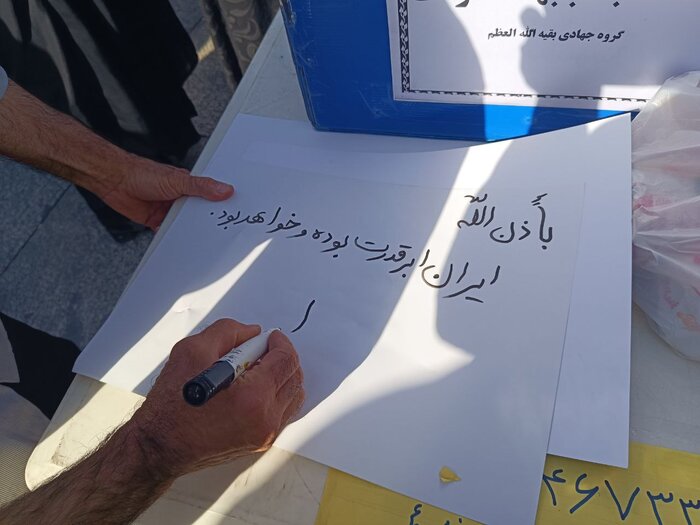 گروه جهادی بقیه الله العظم
بأذن اللّه
ایران ابرقدرت بوده و خواهد بود.
ا
۴۶۷۳۳